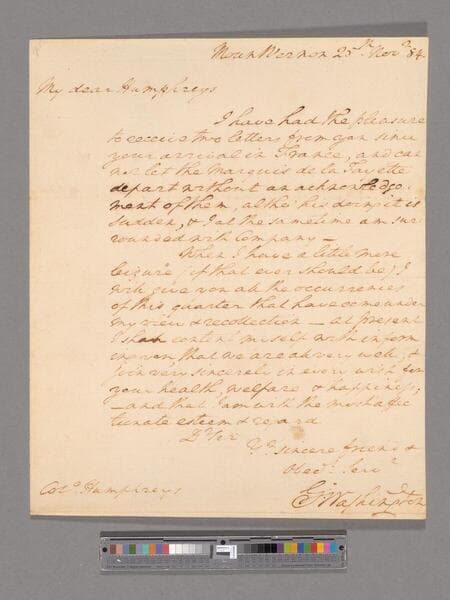 Moun Vernon 25th Novr 84.
My dear Humphreys
I have had the pleasure
to receive two letters from you since
your arrival in France, and can
not let the Marquis de la Fayette
depart without an acknowledge-
ment of them, altho' his doing it is
sudden, & I at the same time am sur
rounded with Company —
When I have a little more
leizure (if that ever should be) I
will give you all the occurrences
of this quarter that have come under
my view & recollection — at present
I shall content myself with inform
ing you, that we are all very well, &
join very sincerely in every wish for
your health, welfare & happiness;
— and that I am with the most affec
tionate esteem & regard
Dr Sir
Yr sincere friend &
Obedt Servt
Go Washington
Colo Humphreys